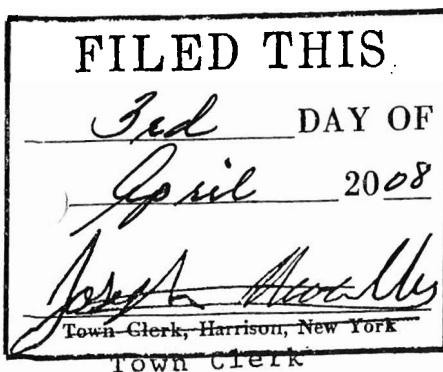 FILED THIS
3rd DAY OF
April 2008
Joseph
Town Clerk, Harrison, New York
Town Clerk